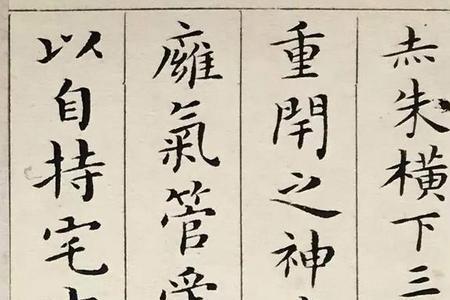 赤朱橫下三
重閇之神
廱氣管受
以自持宅